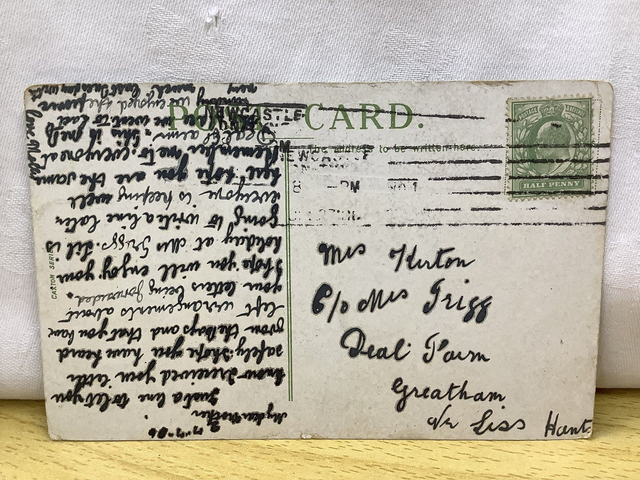 POST CARD.
The address to be written here.
NEWCASTLE
8 - PM
HALF PENNY
Mrs Kirton
C/o Mrs Trigg
Deal Farm
Greatham
Nr Liss Hant
CARTON SERIES
My dear Mother
Just a line to let you
know I received your letter
safely. I hope you have heard
from the boys and that you have
left arrangements about
your letters being forwarded.
I hope you will enjoy your
holiday at Mrs Triggs. Lil is
going to write a line later
everyone is keeping well
hope you are the same
Remember me to everyone at
Deal Farm. This is
we went to last
we enjoyed the
very much